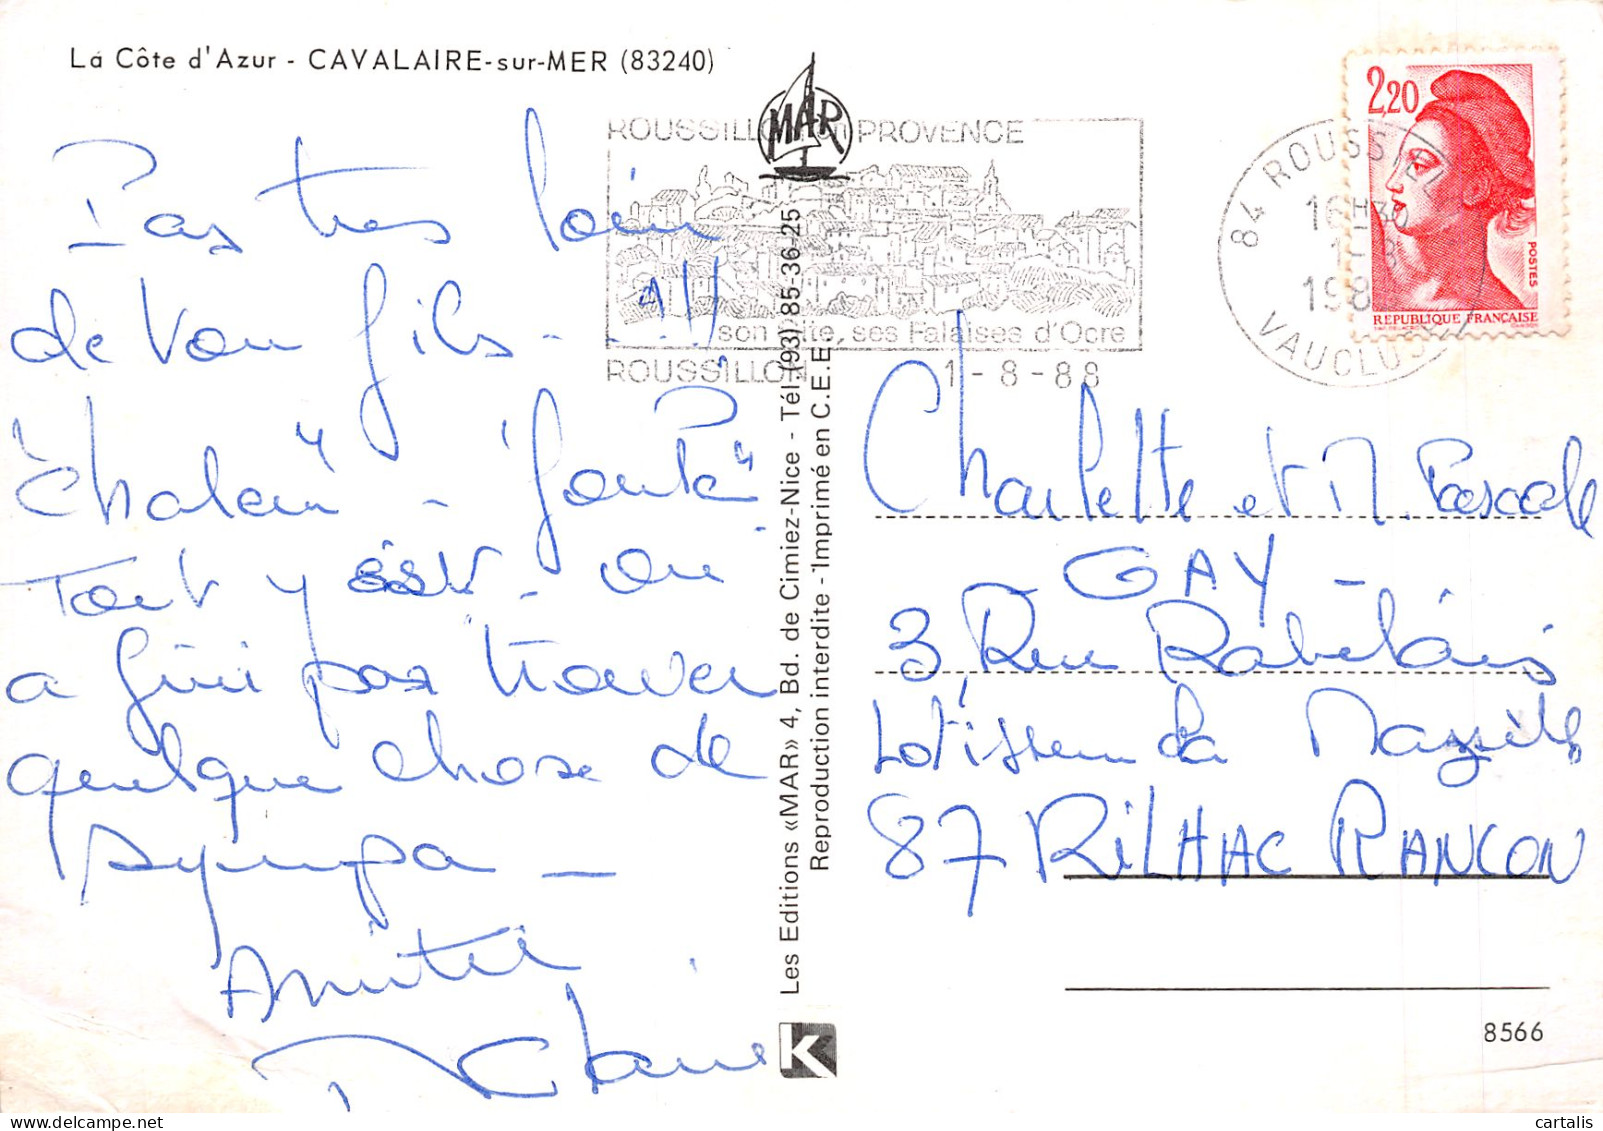 La Côte d'Azur - CAVALAIRE-sur-MER (83240)
Pas tres loin
de Von fils - - !!!
"Chaleur" - "foule"
Tout y est - on
a fini par trouver
quelque chose de
sympa -
Amitié
Claire
MAR
ROUSSILLON en PROVENCE
son site, ses Falaises d'Ocre
ROUSSILLON 1-8-88
84 ROUSSILLON
16H30
1-8
198
VAUCLUSE
2,20
POSTES
REPUBLIQUE FRANÇAISE
Les Editions «MAR» 4, Bd. de Cimiez-Nice - Tél. (93) 85-36-25
Reproduction interdite - Imprimé en C.E.E.
Charlette et M. Pascale
GAY -
3 Rue Rabelais
Lotissem la
87 RILHAC RANCON
K
8566
cartalis